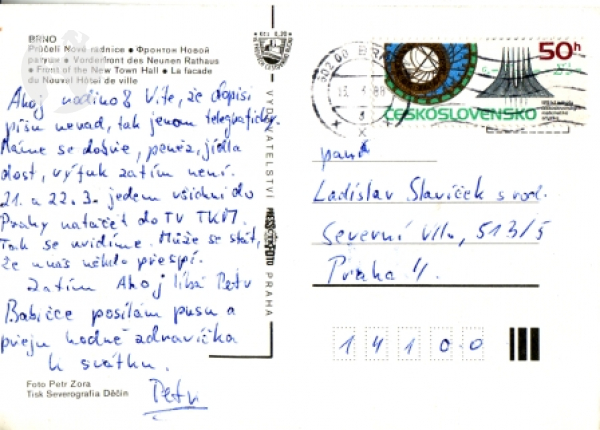 BRNO
Průčelí Nové radnice • Фронтон Новой
ратуши • Vorderfront des Neuen Rathaus
• Front of the New Town Hall • La facade
du Nouvel Hôtel de ville
Ahoj rodino! Víte, že dopisi
píšu nerad, tak jenom telegraficky.
Máme se dobře, peněz, jídla
dost, výfuk zatím není.
21. a 22. 3. jedem všichni do
Prahy natáčet do TV TKM.
Tak se uvidíme. Může se stát,
že u nás někdo přespí.
Zatím Ahoj líbá Petr
Babičce posílám pusu a
přeju hodně zdravíčka
k svátku.
Petr
Foto Petr Zora
Tisk Severografia Děčín
VYDAVATELSTVÍ
PRAHA
602 00 B
13. 3. 88
50h
ČESKOSLOVENSKO
paní
Ladislav Slavíček s rod.
Severní VIII., 513/5
Praha 4.
141 00